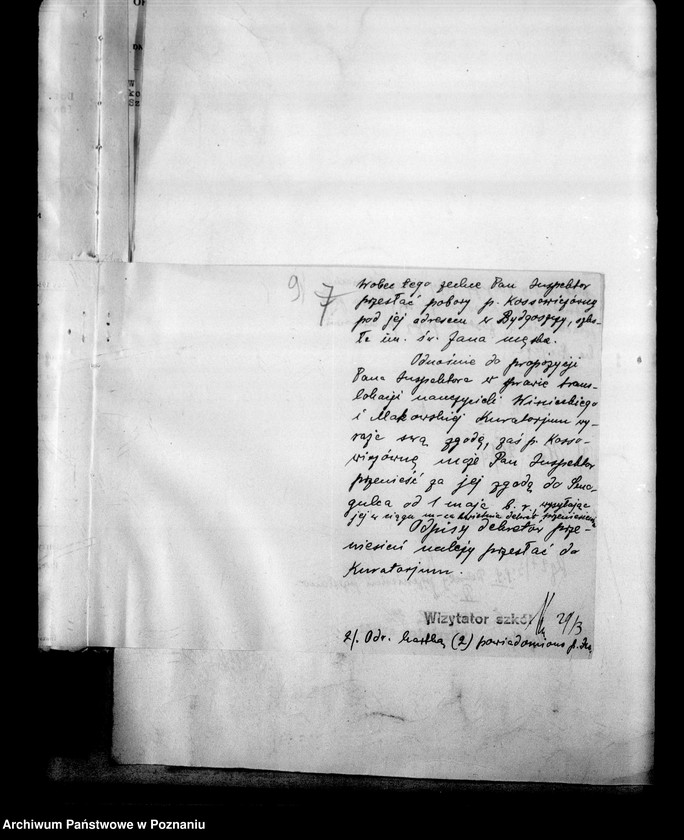 9
7
Wobec tego zechce Pan Inspektor
przesłać pobory p. Kossowiczównej
pod jej adresem w Bydgoszczy, szko-
ła im. św. Jana męska.
Odnośnie do propozycji
Pana Inspektora w sprawie trans-
lokacji nauczycieli Wisnieckiego
i Makowskiej Kuratorjum wy-
raża swą zgodę, zaś p. Kosso-
wiczównę może Pan Inspektor
przenieść za jej zgodą do
od 1 maja b. r., wysyłając
jej w ciągu m-ca kwietnia dekret przeniesienia
Odpisy dekretów prze-
niesień należy przesłać do
Kuratorjum.
Wizytator szkół 29/3
2/. Odr. kartką (2) powiadomiono p.
Archiwum Państwowe w Poznaniu